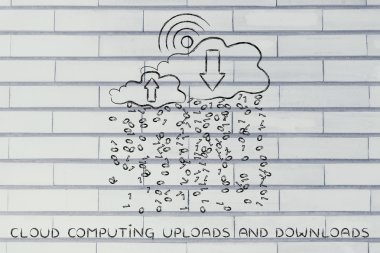 CLOUD COMPUTING UPLOADS AND DOWNLOADS